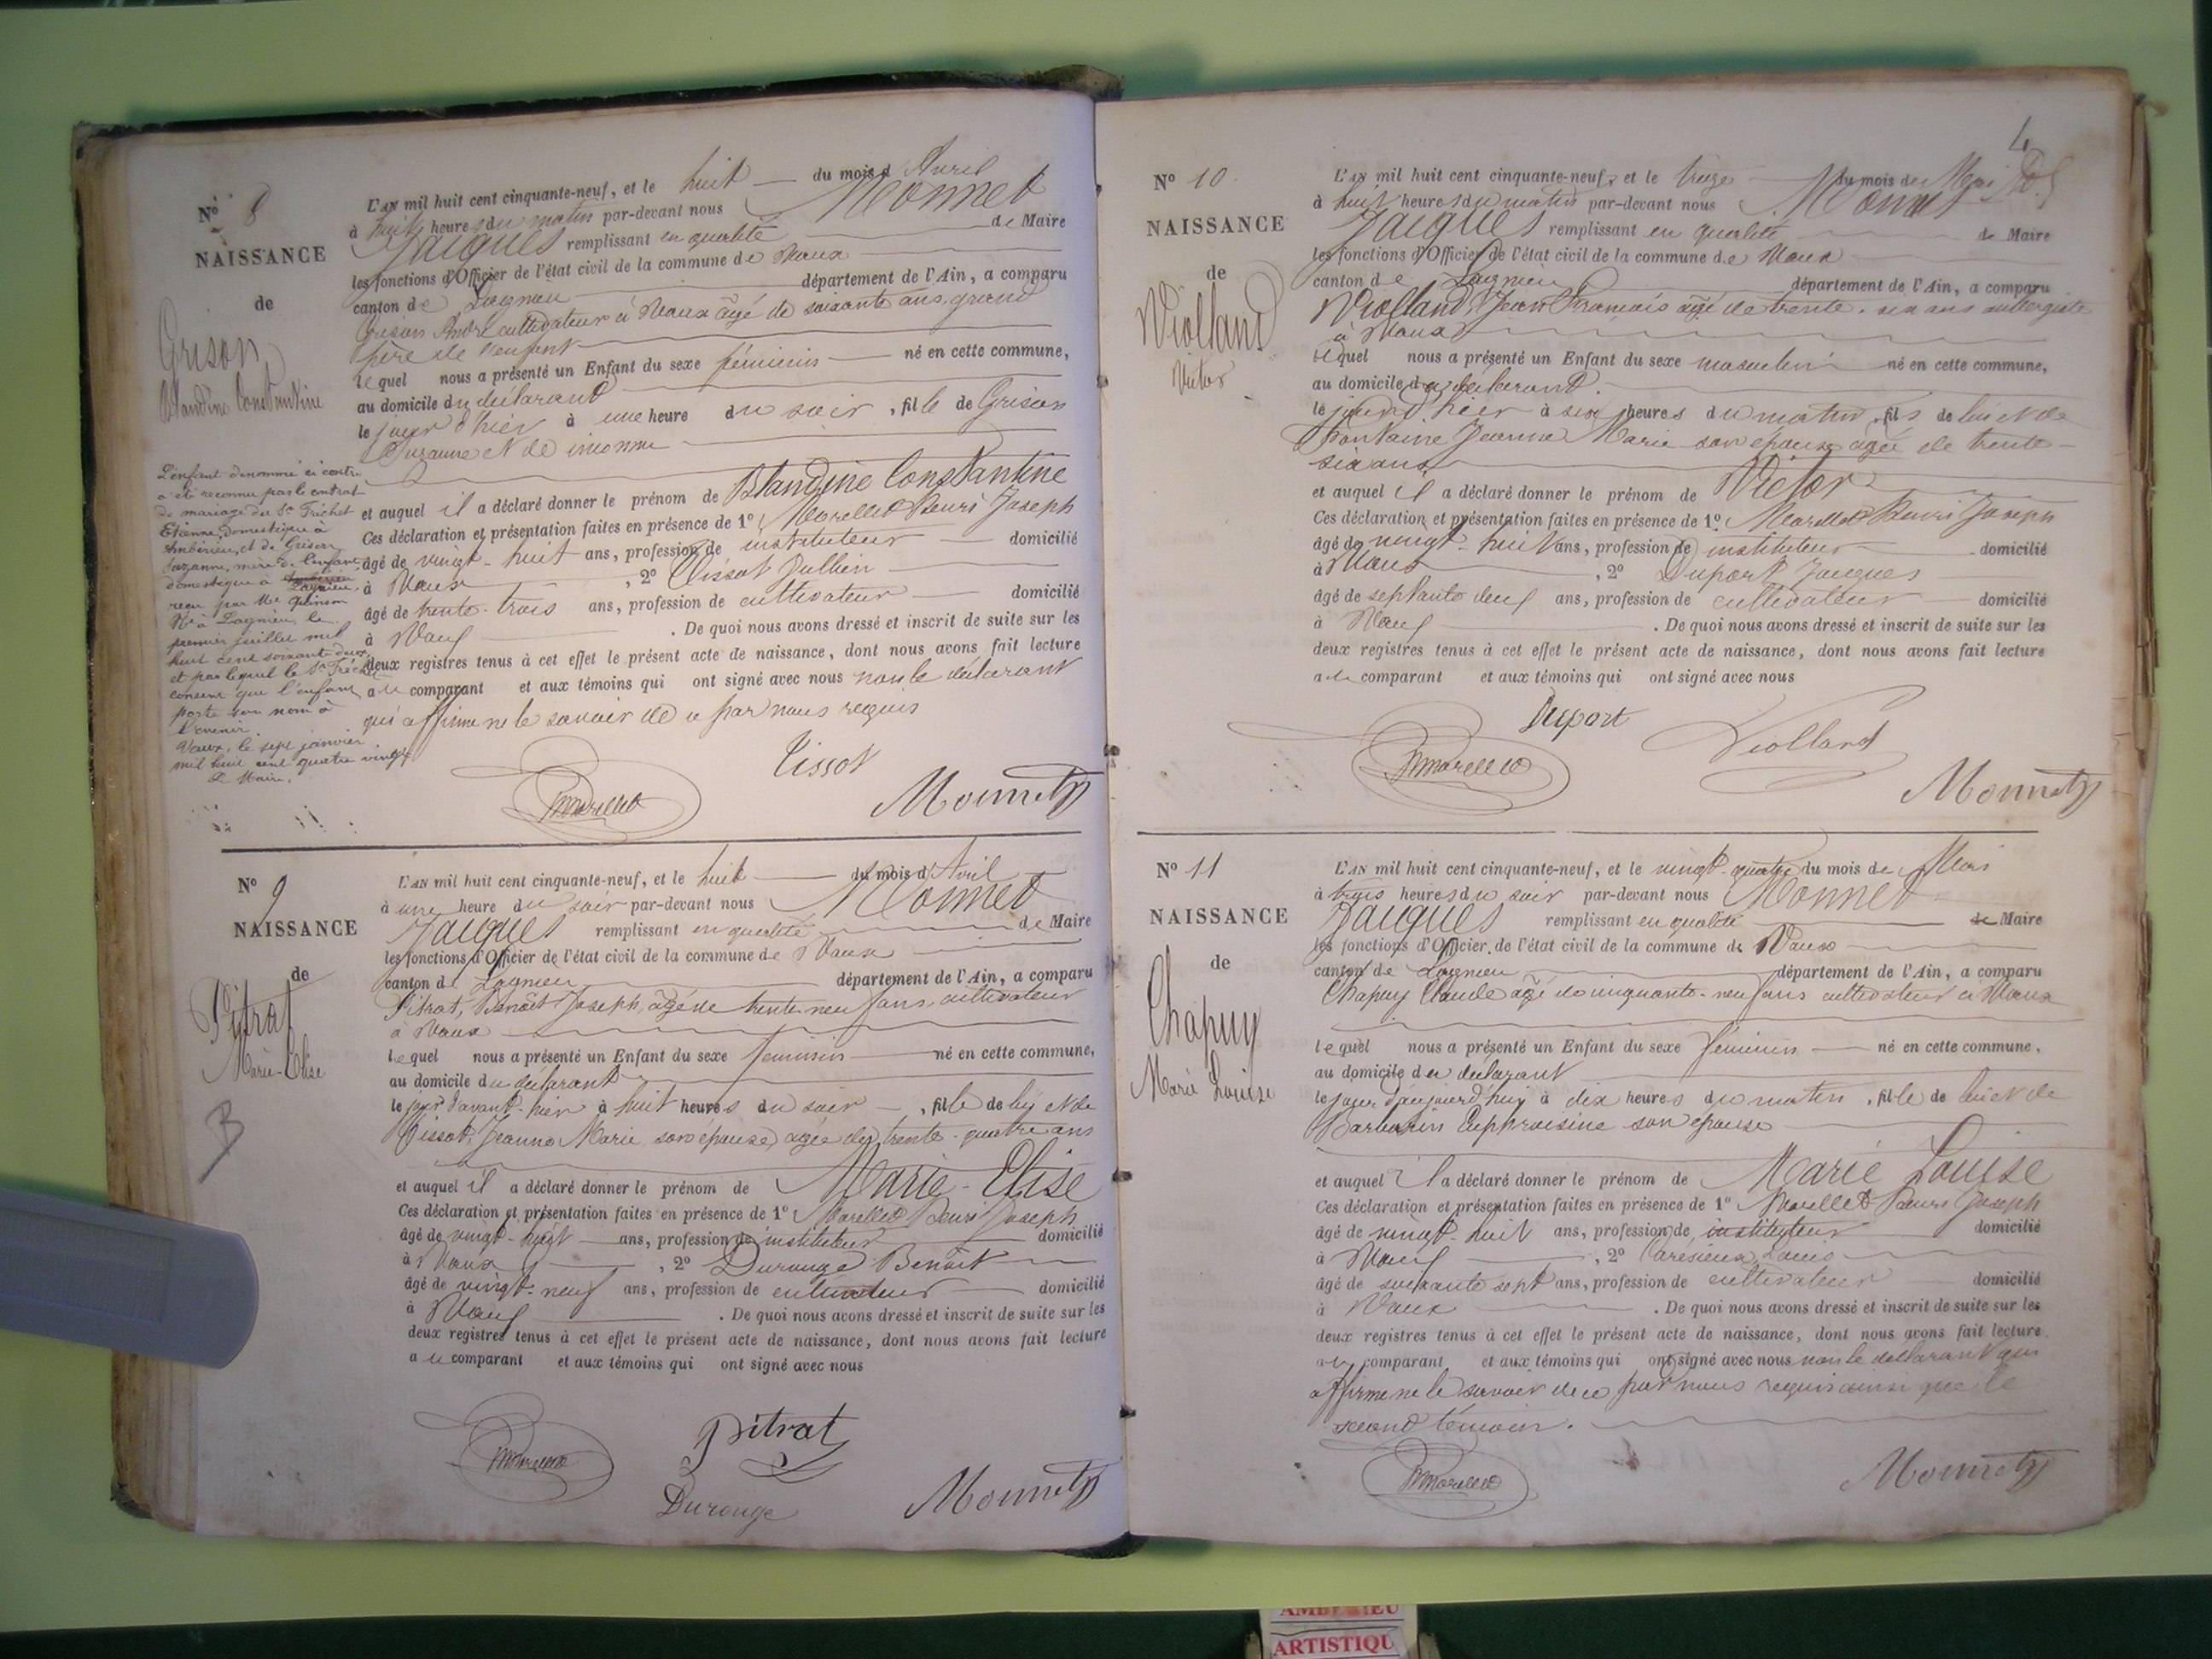 N° 8
NAISSANCE
de
Grison
Blandine Constantine
L'enfant dénommé ci contre
a été reconnu par le contrat
de mariage du Sr Frichet
Etienne, domestique à
Ambérieu, et de Grison
Suzanne, mère de l'enfant,
domestique à Ambérieu
Lagnieu,
reçu par Me Quinson
Nre à Lagnieu le
premier juillet mil
huit cent soixante deux
et par lequel le Sr Frichet
consent que l'enfant
porte son nom à
l'avenir.
Vaux, le sept janvier
mil huit cent quatre vingt
Le Maire,
L'AN mil huit cent cinquante-neuf, et le huit du mois d Avril
à huit heures du matin par-devant nous Monnet
Jacques remplissant en qualité de Maire
les fonctions d'Officier de l'état civil de la commune de Vaux
canton de Lagnieu département de l'Ain, a comparu
Grison André cultivateur à Vaux âgé de soixante ans, grand
père de l'enfant
lequel nous a présenté un Enfant du sexe féminin né en cette commune,
au domicile du déclarant
le jour d'hier à une heure du soir, fille de Grison
Suzanne et de inconnu
et auquel il a déclaré donner le prénom de Blandine Constantine
Ces déclaration et présentation faites en présence de 1° Morellet Henri Joseph
âgé de vingt-huit ans, profession de instituteur domicilié
à Vaux, 2° Tissot Jullien
âgé de trente-trois ans, profession de cultivateur domicilié
à Vaux. De quoi nous avons dressé et inscrit de suite sur les
deux registres tenus à cet effet le présent acte de naissance, dont nous avons fait lecture
au comparant et aux témoins qui ont signé avec nous non le déclarant
qui affirme ne le savoir de ce par nous requis
Tissot
Morellet
Monnet
N° 9
NAISSANCE
de
Pitrat
Marie-Elise
B
L'AN mil huit cent cinquante-neuf, et le huit du mois d'Avril
à une heure du soir par-devant nous Monnet
Jacques remplissant en qualité de Maire
les fonctions d'Officier de l'état civil de la commune de Vaux
canton de Lagnieu département de l'Ain, a comparu
Pitrat, Benoît Joseph, âgé de trente-neuf ans, cultivateur
à Vaux
lequel nous a présenté un Enfant du sexe féminin né en cette commune,
au domicile du déclarant
le jour d'avant-hier à huit heures du soir, fille de lui et de
Tissot Jeanne Marie son épouse, âgée de trente-quatre ans
et auquel il a déclaré donner le prénom de Marie-Elise
Ces déclaration et présentation faites en présence de 1° Morellet Henri Joseph
âgé de vingt-huit ans, profession de instituteur domicilié
à Vaux, 2° Durouge Benoît
âgé de vingt-neuf ans, profession de cultivateur domicilié
à Vaux. De quoi nous avons dressé et inscrit de suite sur les
deux registres tenus à cet effet le présent acte de naissance, dont nous avons fait lecture
au comparant et aux témoins qui ont signé avec nous
Pitrat
Morellet
Durouge
Monnet
4
N° 10
NAISSANCE
de
Violland
Victor
L'AN mil huit cent cinquante-neuf, et le treize du mois de Mai
à huit heures du matin par-devant nous Monnet
Jacques remplissant en qualité de Maire
les fonctions d'Officier de l'état civil de la commune de Vaux
canton de Lagnieu département de l'Ain, a comparu
Violland, Jean François âgé de trente-six ans aubergiste
à Vaux
lequel nous a présenté un Enfant du sexe masculin né en cette commune,
au domicile du déclarant.
le jour d'hier à six heures du matin, fils de lui et de
Fontaine Jeanne Marie son épouse âgée de trente-
six ans
et auquel il a déclaré donner le prénom de Victor
Ces déclaration et présentation faites en présence de 1° Morellet Henri Joseph
âgé de vingt-huit ans, profession de instituteur domicilié
à Vaux, 2° Duport Jacques
âgé de septante deux ans, profession de cultivateur domicilié
à Vaux. De quoi nous avons dressé et inscrit de suite sur les
deux registres tenus à cet effet le présent acte de naissance, dont nous avons fait lecture
au comparant et aux témoins qui ont signé avec nous
Duport
Violland
Morellet
Monnet
N° 11
NAISSANCE
de
Chapuy
Marie Louise
L'AN mil huit cent cinquante-neuf, et le vingt-quatre du mois de Mai
à trois heures du soir par-devant nous Monnet
Jacques remplissant en qualité de Maire
les fonctions d'Officier de l'état civil de la commune de Vaux
canton de Lagnieu département de l'Ain, a comparu
Chapuy Claude âgé de cinquante-neuf ans cultivateur à Vaux
lequel nous a présenté un Enfant du sexe féminin né en cette commune,
au domicile du déclarant
le jour d'aujourd'huy à dix heures du matin, fille de lui et de
Barbarin Euphroisine son épouse
et auquel il a déclaré donner le prénom de Marie Louise
Ces déclaration et présentation faites en présence de 1° Morellet Henri Joseph
âgé de vingt-huit ans, profession de instituteur domicilié
à Vaux, 2° Louis
âgé de soixante sept ans, profession de cultivateur domicilié
à Vaux. De quoi nous avons dressé et inscrit de suite sur les
deux registres tenus à cet effet le présent acte de naissance, dont nous avons fait lecture
au comparant et aux témoins qui ont signé avec nous non le déclarant qui
affirme ne le savoir de ce par nous requis ainsi que le
second témoin.
Morellet
Monnet
AMBERIEU
ARTISTIQU